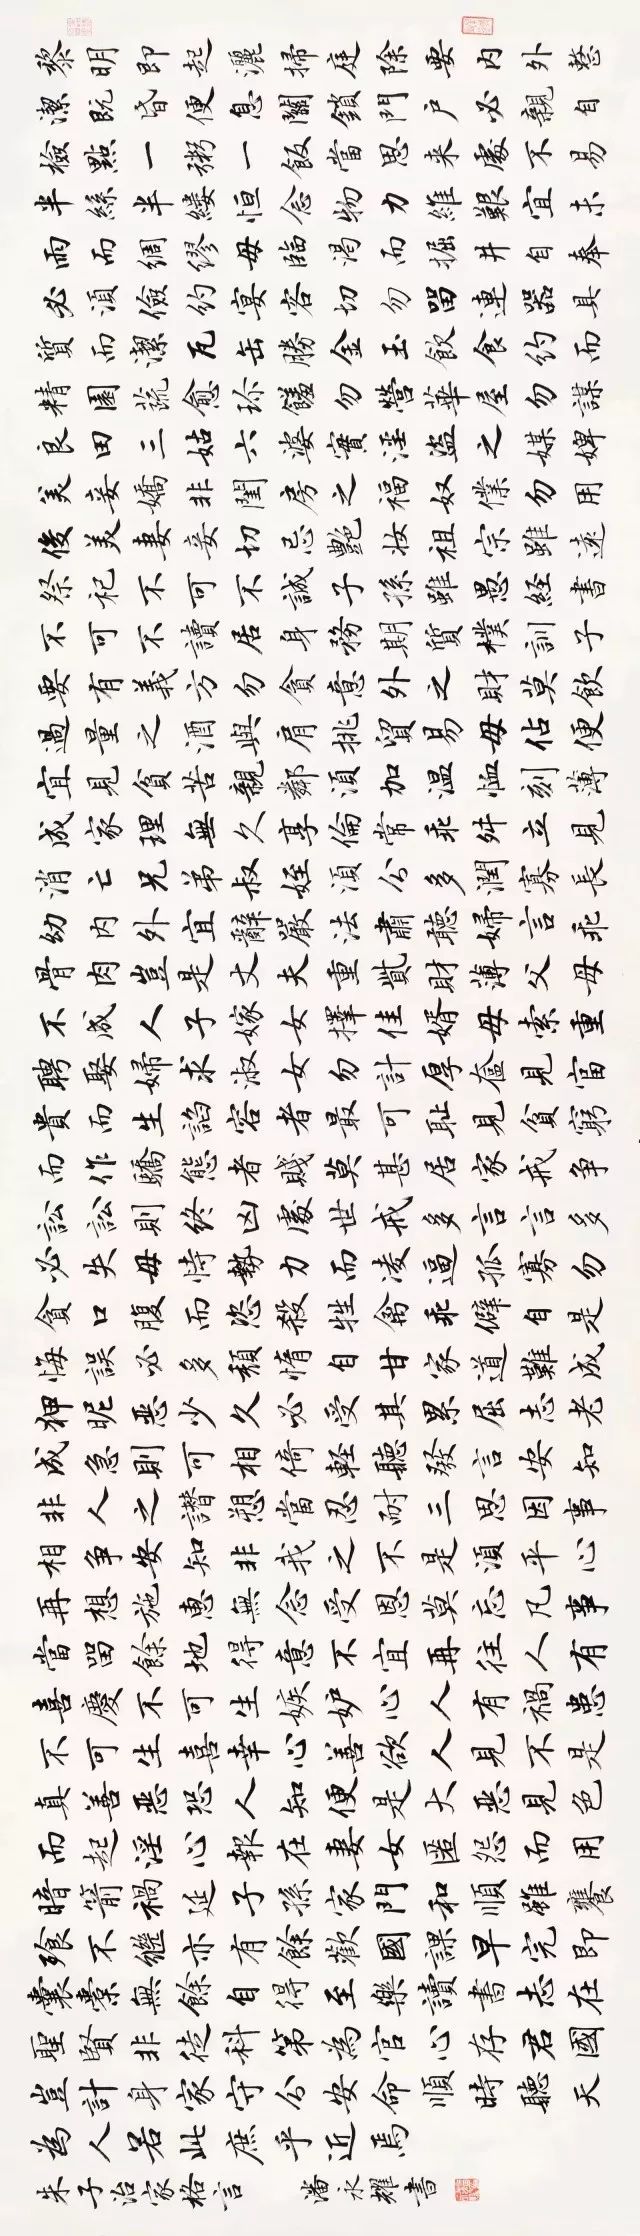 黎明即起灑掃庭除要内外整
潔既昏便息關鎖門户必親自
檢點一粥一飯當思来處不易
半絲半縷恒念物力維艱宜未
雨而綢繆毋臨渴而掘井自奉
必須儉約宴客切勿留連器具
質而潔瓦缶勝金玉飲食約而
精園蔬愈珍饈勿營華屋勿謀
良田三姑六婆實淫盜之媒婢
美妾嬌非閨房之福奴僕勿用
俊美妻妾切忌艷妝祖宗雖遠
祭祀不可不誠子孫雖愚経書
不可不讀居身務期質樸訓子
要有義方勿貪意外之財莫飲
過量之酒與肩挑貿易毋佔便
宜見貧苦親鄰須加温恤刻薄
成家理無久享倫常乖舛立見
消亡兄弟叔姪須公多潤寡長
幼内外宜辭嚴法肅聽婦言乖
骨肉豈是丈夫重貲財薄父毋
不成人子嫁女擇佳婿毋索重
聘娶婦求淑女勿計厚奩見富
貴而生諂容者最可耻見貧窮
而作驕態者賤莫甚居家戒争
訟訟則終凶處世戒多言言多
必失毋恃勢力而凌逼孤寡勿
貪口腹而恣殺牲禽乖僻自是
悔誤必多頹惰自甘家道難成
狎昵恶少久必受其累屈志老
成急則可相倚輕聽發言安知
非人之譖愬當忍耐三思因事
相争安知非我之不是須平心
再想施惠無念受恩莫忘凡事
當留餘地得意不宜再往人有
喜慶不可生嫉妒心人有禍患
不可生喜幸心善欲人見不是
真善恶恐人知便是大恶見色
而起淫心報在妻女匿怨而用
暗箭禍延子孫家門和順雖饔
飧不繼亦有餘歡國課早完即
囊橐無餘自得至樂讀書志在
聖賢非徒科第為官心存君國
豈計身家守分安命順時聽天
為人若此庶乎近焉
朱子治家格言 潘永耀書